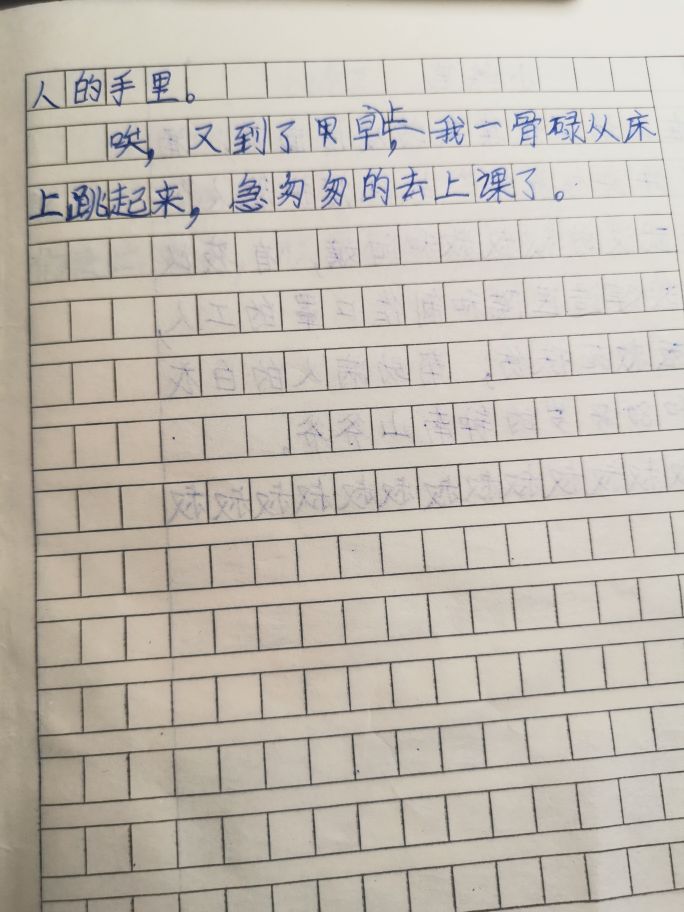 人的手里。
唉，又到了早上，我一骨碌从床
上跳起来，急匆匆的去上课了。